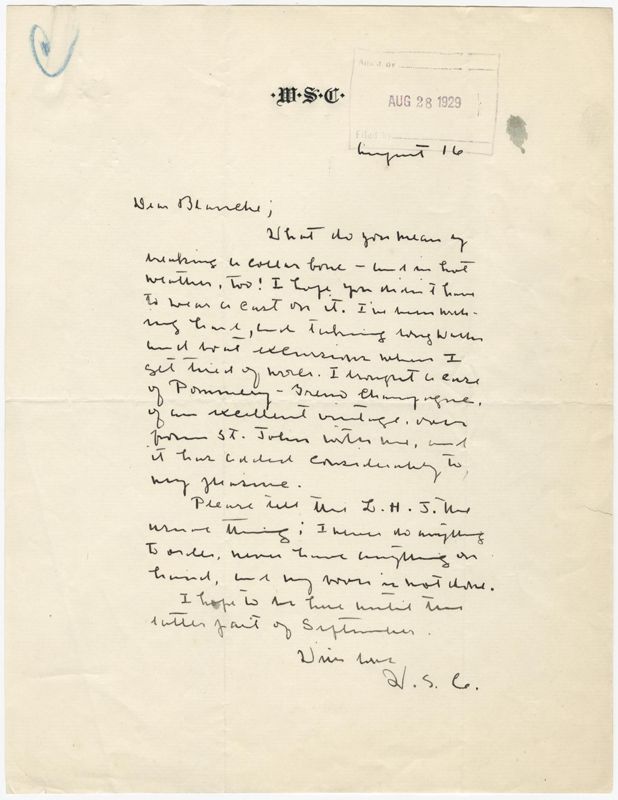 ·W·S·C·
Ans'd by
AUG 28 1929
Filed by
August 16
Dear Blanche;
What do you mean by
breaking a collar bone – and in hot
weather, too! I hope you didn't have
to wear a cast on it. I've been work-
ing hard, and taking long walks
and boat excursions when I
get tired of work. I brought a case
of Pommery - Greno Champagne,
of an excellent vintage, over
from St. John with me, and
it has added considerably to
my pleasure.
Please tell the L. H. J. the
usual thing; I never do anything
to order, never have anything on
hand, and my work is not done.
I hope to be here until the
latter part of September.
With love
W. S. C.